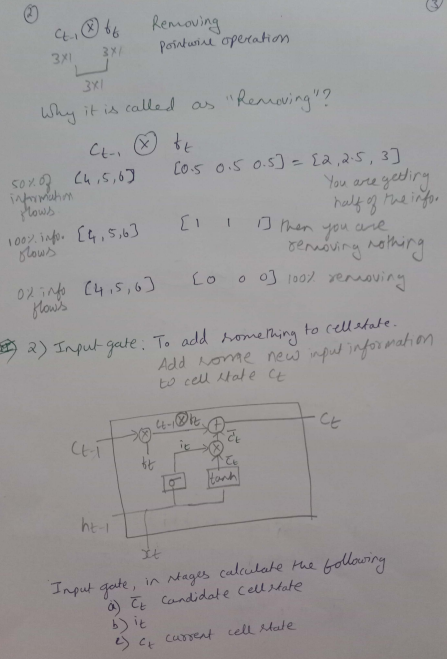 ② ③
Ct-1 ⊗ ft Removing
3x1 3x1 pointwise operation
3x1
Why it is called as "Removing"?
Ct-1 ⊗ ft
50% of information flows [4,5,6] [0.5 0.5 0.5] = [2, 2.5, 3]
You are getting half of the info.
100% info. flows [4,5,6] [1 1 1] then you are removing nothing
0% info flows [4,5,6] [0 0 0] 100% removing
2) Input gate: To add something to cell state.
Add some new input information
to cell state Ct
Ct-1⊗ft
Ct-1 ⊗ + Ct
ft it ⊗ C̄t
C̄t
σ tanh
ht-1
xt
Input gate, in stages calculate the following
a) C̄t candidate cell state
b) it
c) Ct current cell state